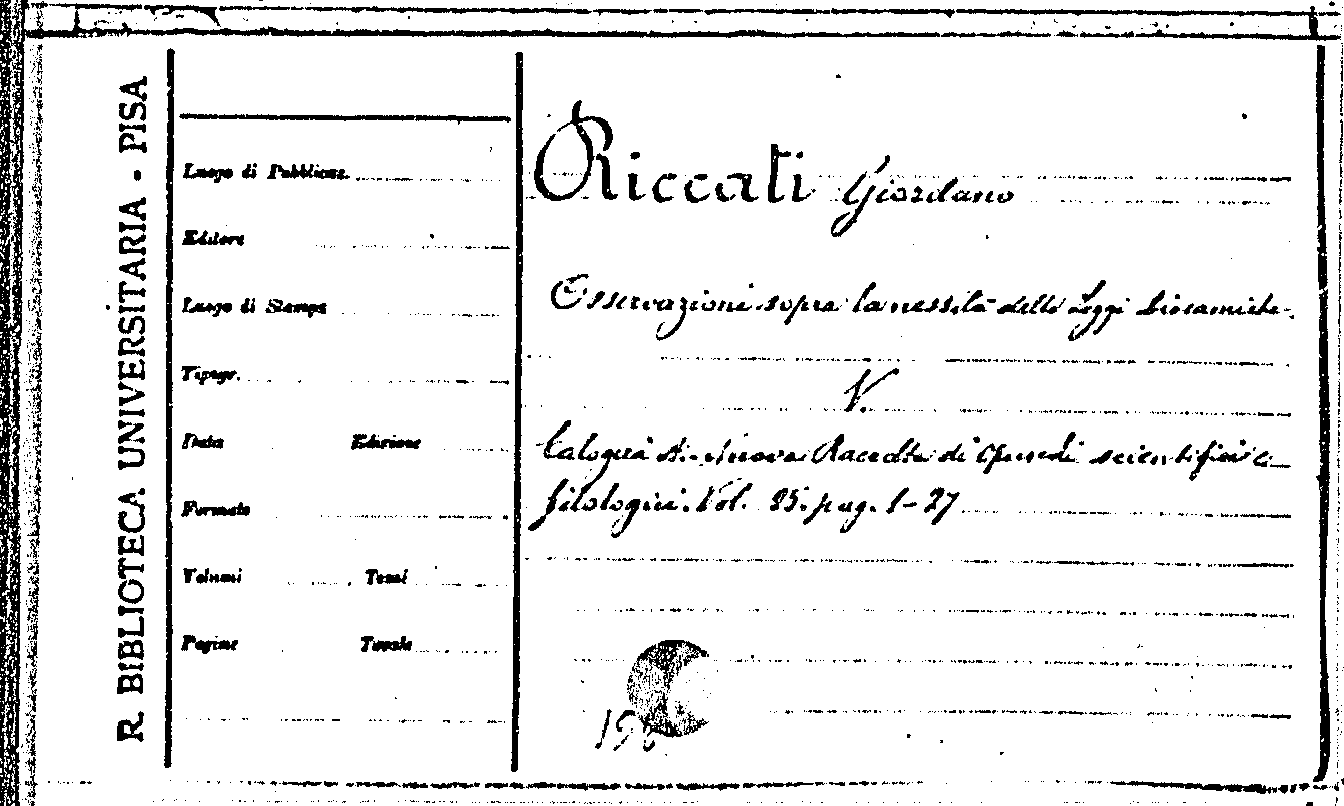 R. BIBLIOTECA UNIVERSITARIA - PISA
Luogo di Pubblicaz.
Editore
Luogo di Stampa
Tipogr.
Data Edizione
Formato
Volumi Tomi
Pagine Tavole
Riccati Giordano
Osservazioni sopra la delle Leggi
V.
Calogerà A. Nuova Raccolta di Opuscoli scientifici e
filologici. Vol. 25. pag. 1-27